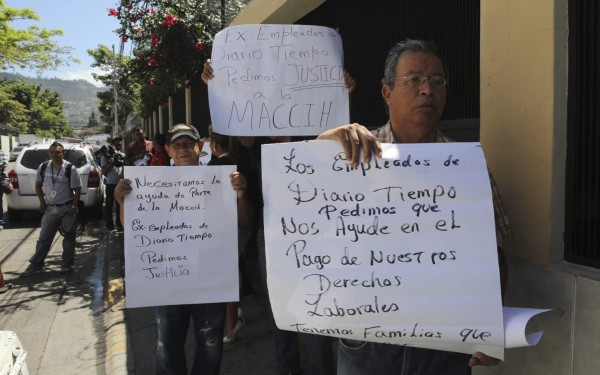 Ex Empleados de
Diario Tiempo
Pedimos JUSTICIA
a la
MACCIH
Necesitamos la
ayuda de Parte
de la Maccih.
Ex-Empleados de
Diario Tiempo
Pedimos
Justicia
Los Empleados de
Diario Tiempo
Pedimos que
Nos Ayude en el
Pago de Nuestros
Derechos
Laborales
Tenemos Familias que